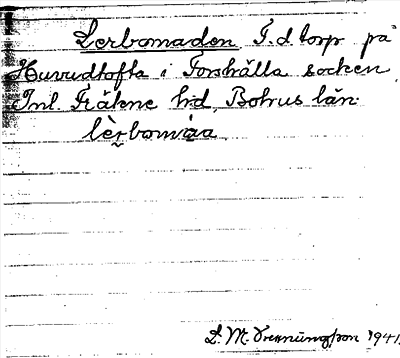 Lerbomaden F.d. torp på
Huvudtofta i Forshälla socken,
Inl. Fräkne hd, Bohus län.
lèrbomàa
1941.